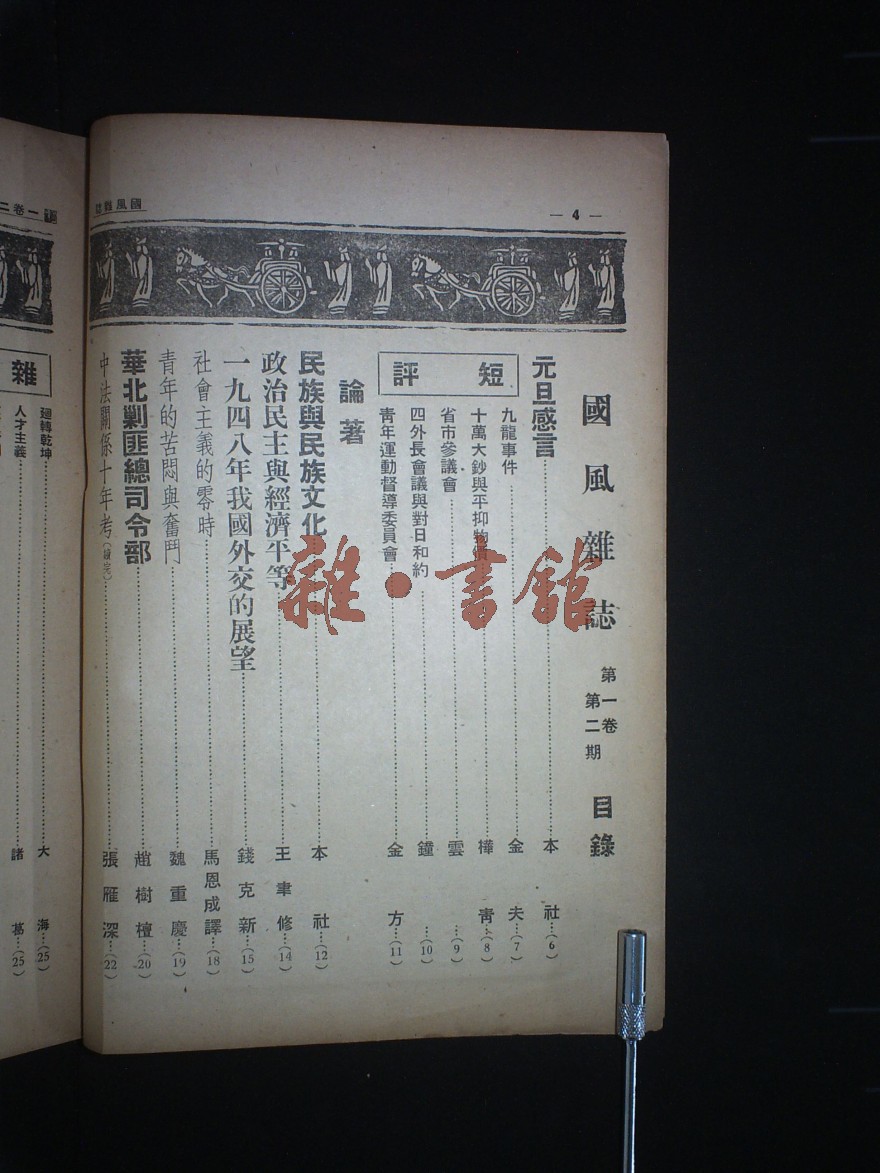 — 4 —
國風雜誌
國風雜誌
第一卷
第二期
目錄
元旦感言……本社…(6)
短評
九龍事件……金夫…(7)
十萬大鈔與平抑物價……樺青…(8)
省市參議會……雲…(9)
四外長會議與對日和約……鐘…(10)
青年運動督導委員會……金方…(11)
論著
民族與民族文化……本社…(12)
政治民主與經濟平等……王聿修…(14)
一九四八年我國外交的展望……錢克新…(15)
社會主義的零時……馬恩成譯…(18)
青年的苦悶與奮鬥……魏重慶…(19)
華北剿匪總司令部……趙樹檀…(20)
中法關係十年考(續完)……張雁深…(22)
一卷二
雜
廻轉乾坤……大海…(25)
人才主義……諸葛…(25)
雜·書館